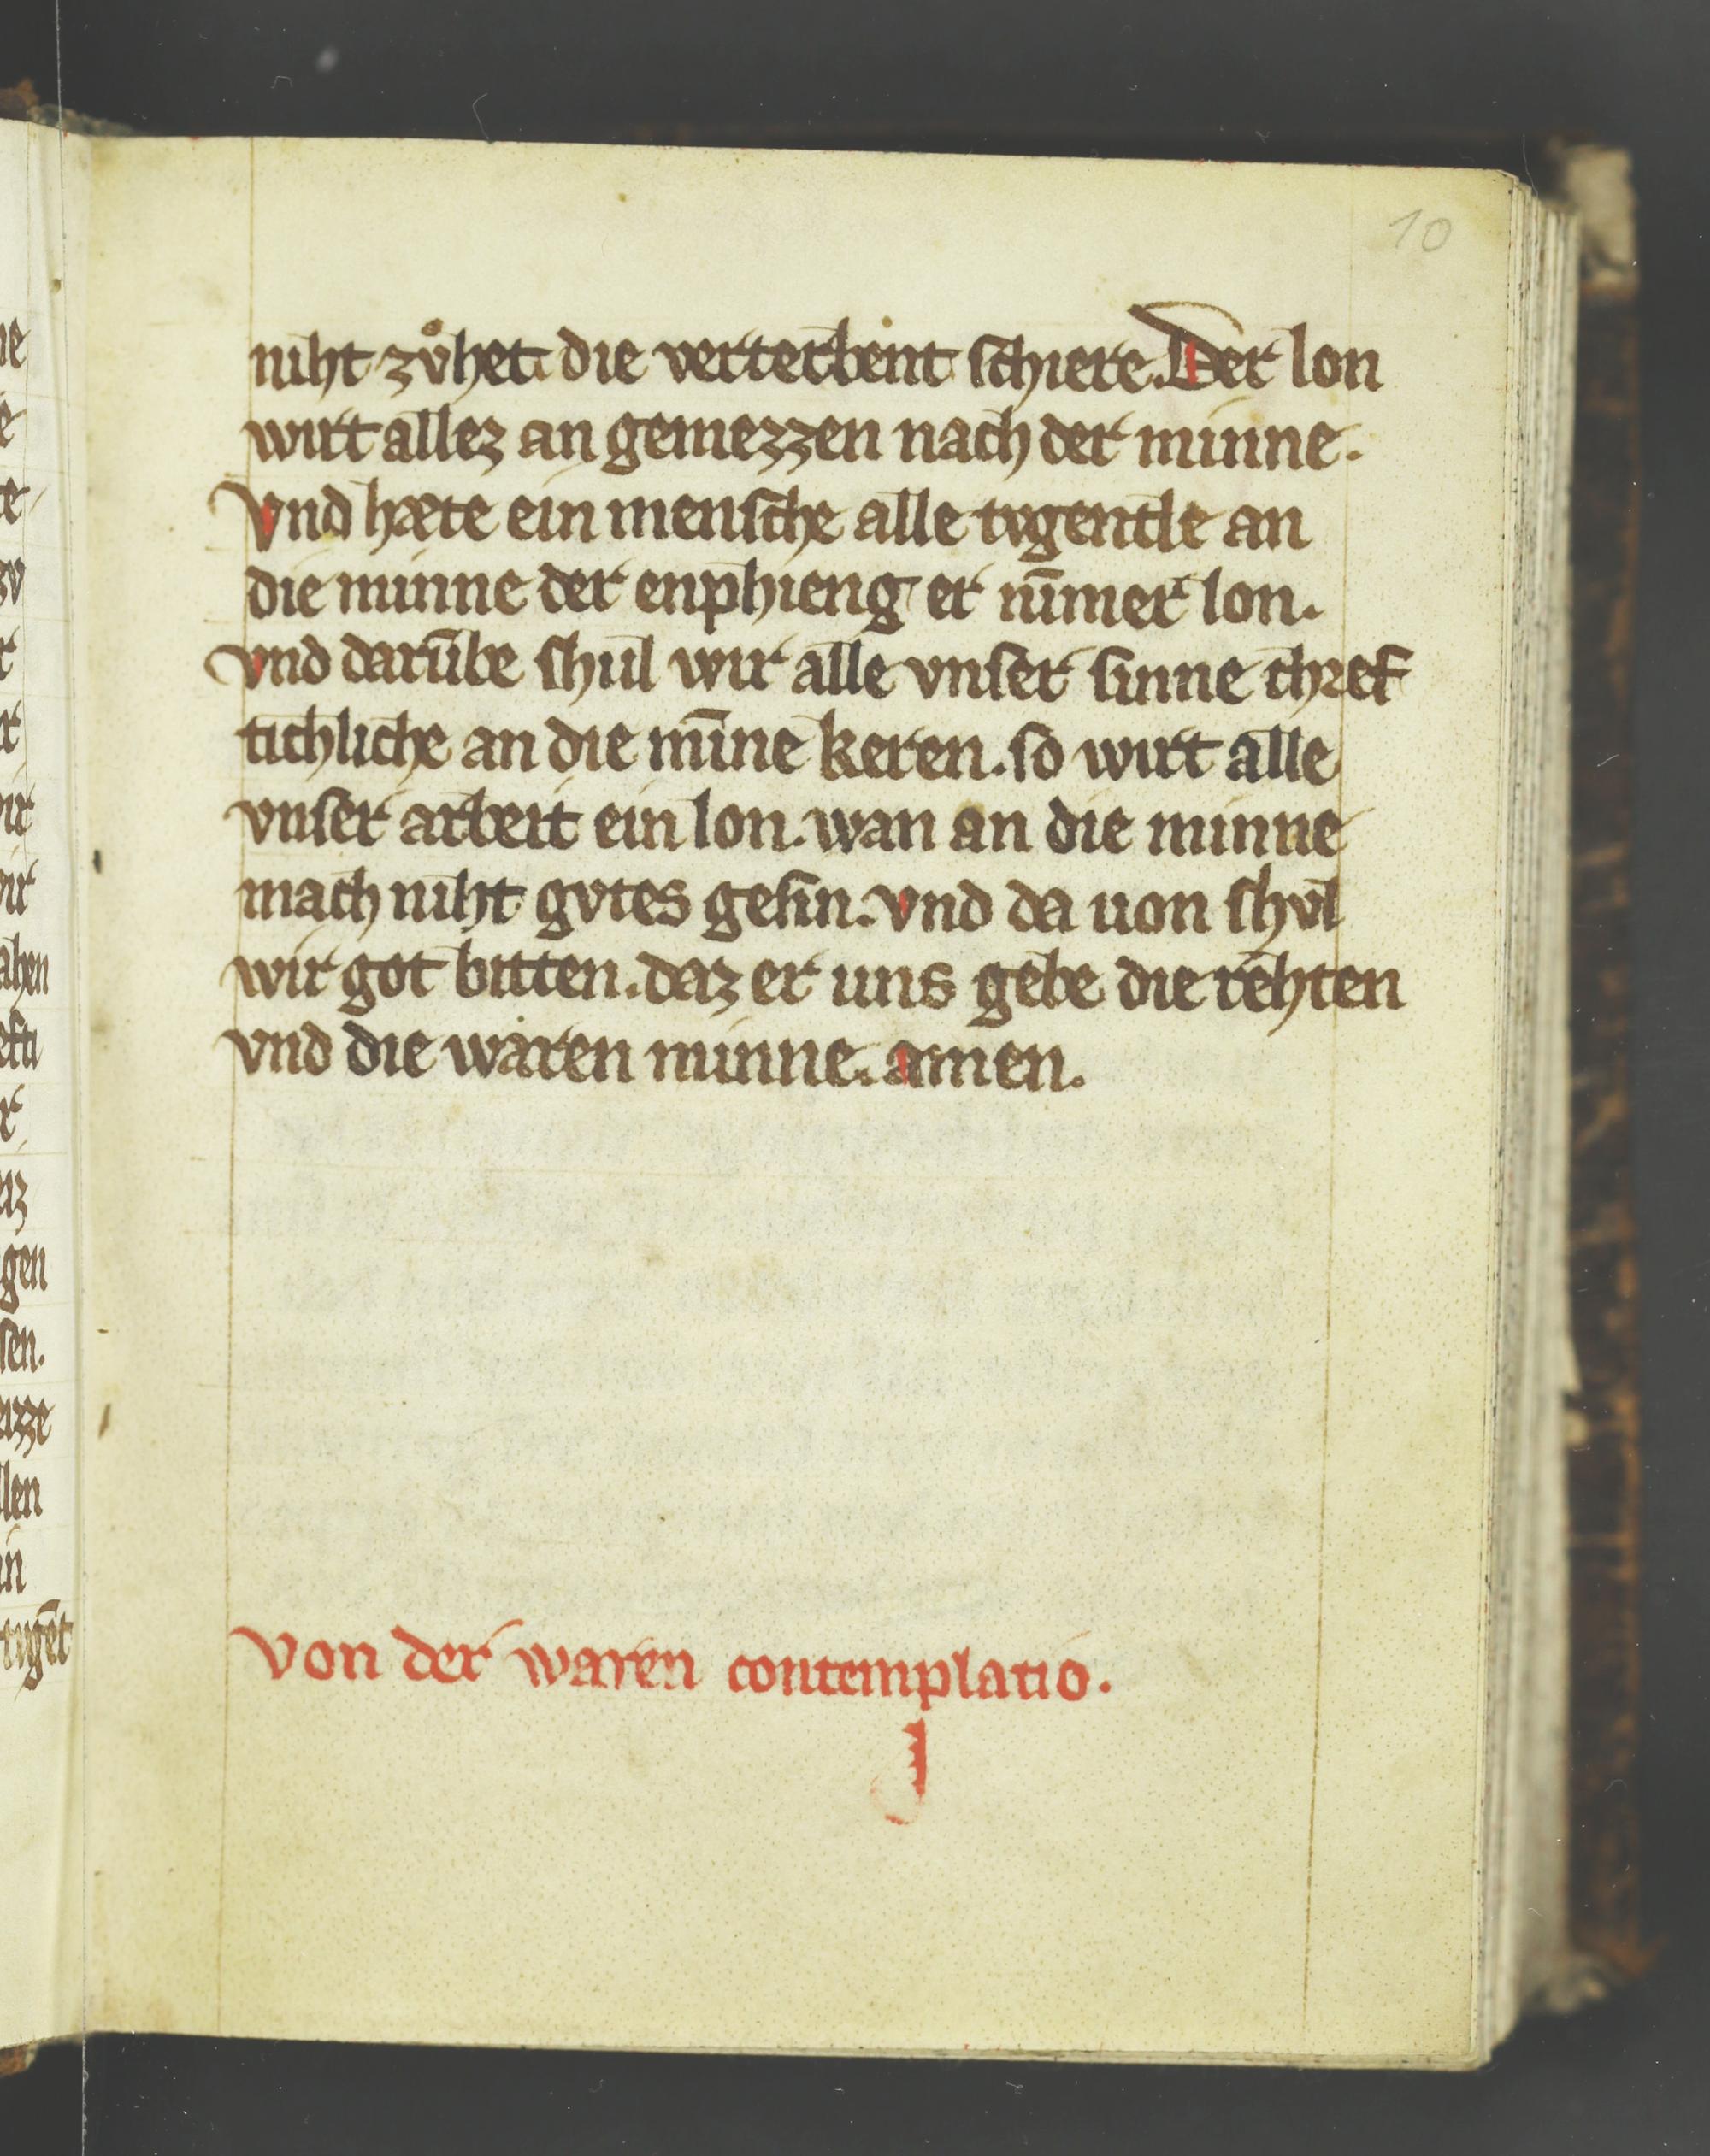 10
niht zvͦhet. die verterbent schiere. Der lon
wirt allez an gemezzen nach der minne.
Vnd hæte ein mensche alle tvgentle an
die minne der enphieng er nīmer lon.
vnd darūbe shul wir alle vnser sinne chref
tichliche an die mīne keren. so wirt alle
vnser arbeit ein lon. wan an die minne
mach niht gvtes gesin. vnd da uon shvl
wir got bitten. daz er uns gebe die rehten
vnd die waren minne. amen.
Von der waren contemplatio.
J